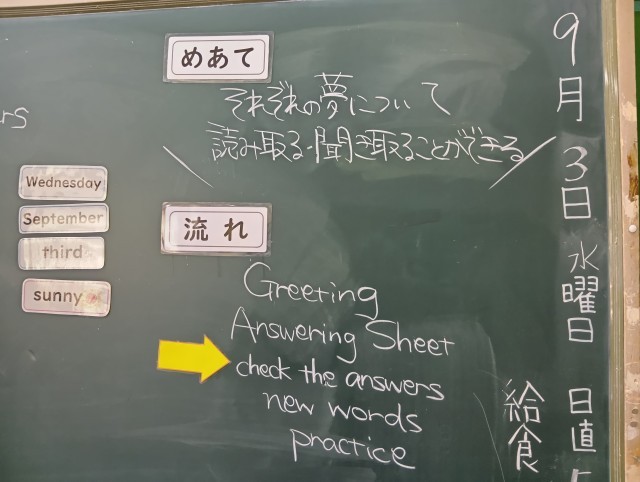 めあて
それぞれの夢について
読み取る・聞き取ることができる
流れ
Greeting
Answering Sheet
check the answers
new words
practice
Wednesday
September
third
sunny
9月3日水曜日
日直
給食